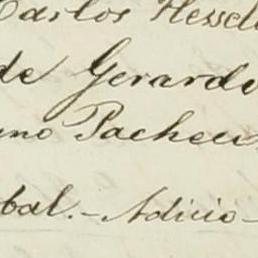 Carlos Hessel
de Gerardo
uno Pacheco
bal. - Adicio-